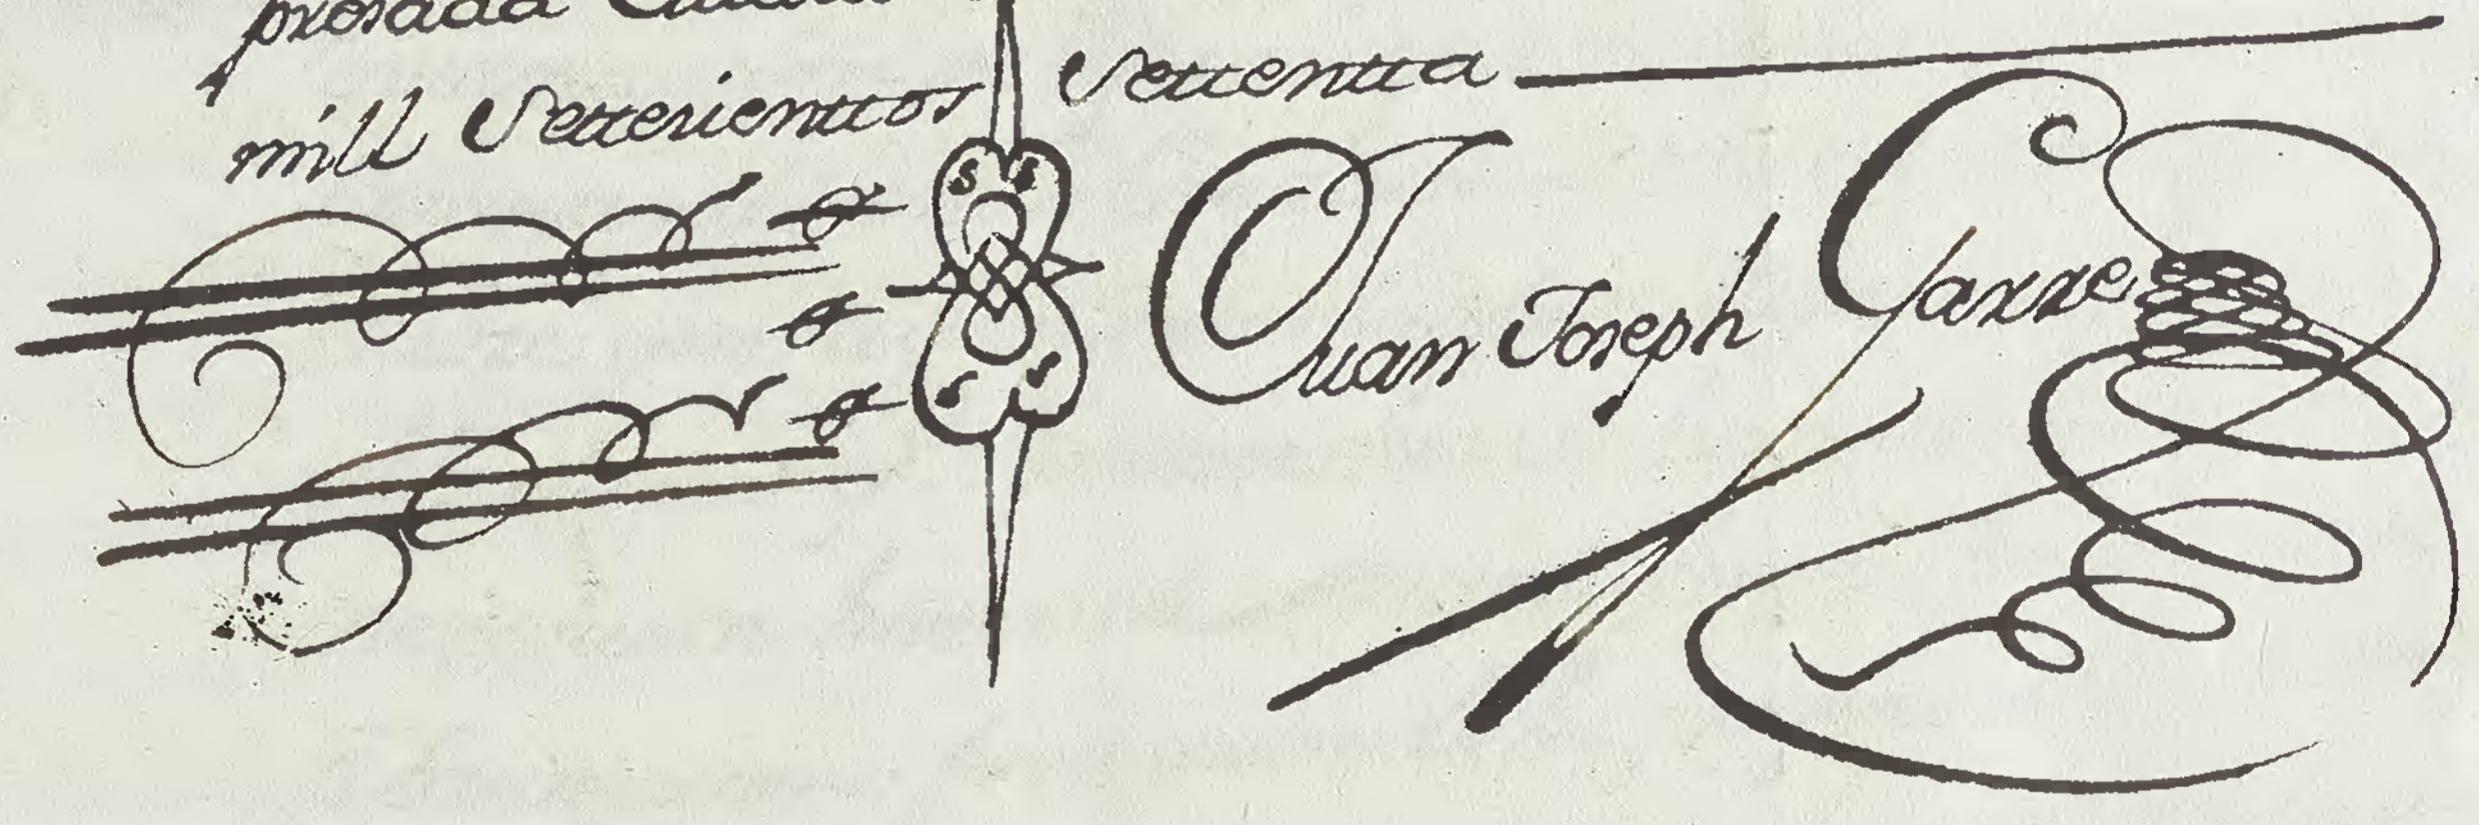 presada
mill Settesienttos Settentta
Juan Joseph Garre